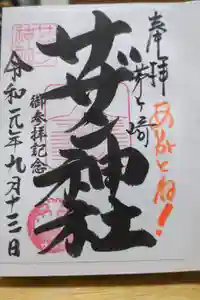 奉拝
茅ヶ崎
ありがとね!
サザン神社
御参拝記念
令和元年九月十三日